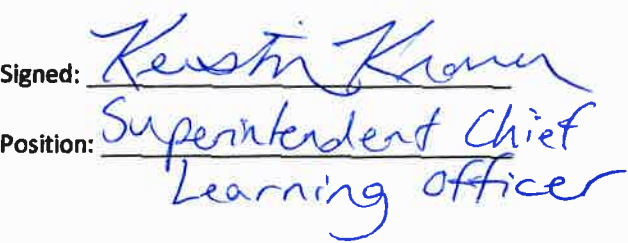 Signed: Kerstin Kramer
Position: Superintendent Chief
Learning Officer